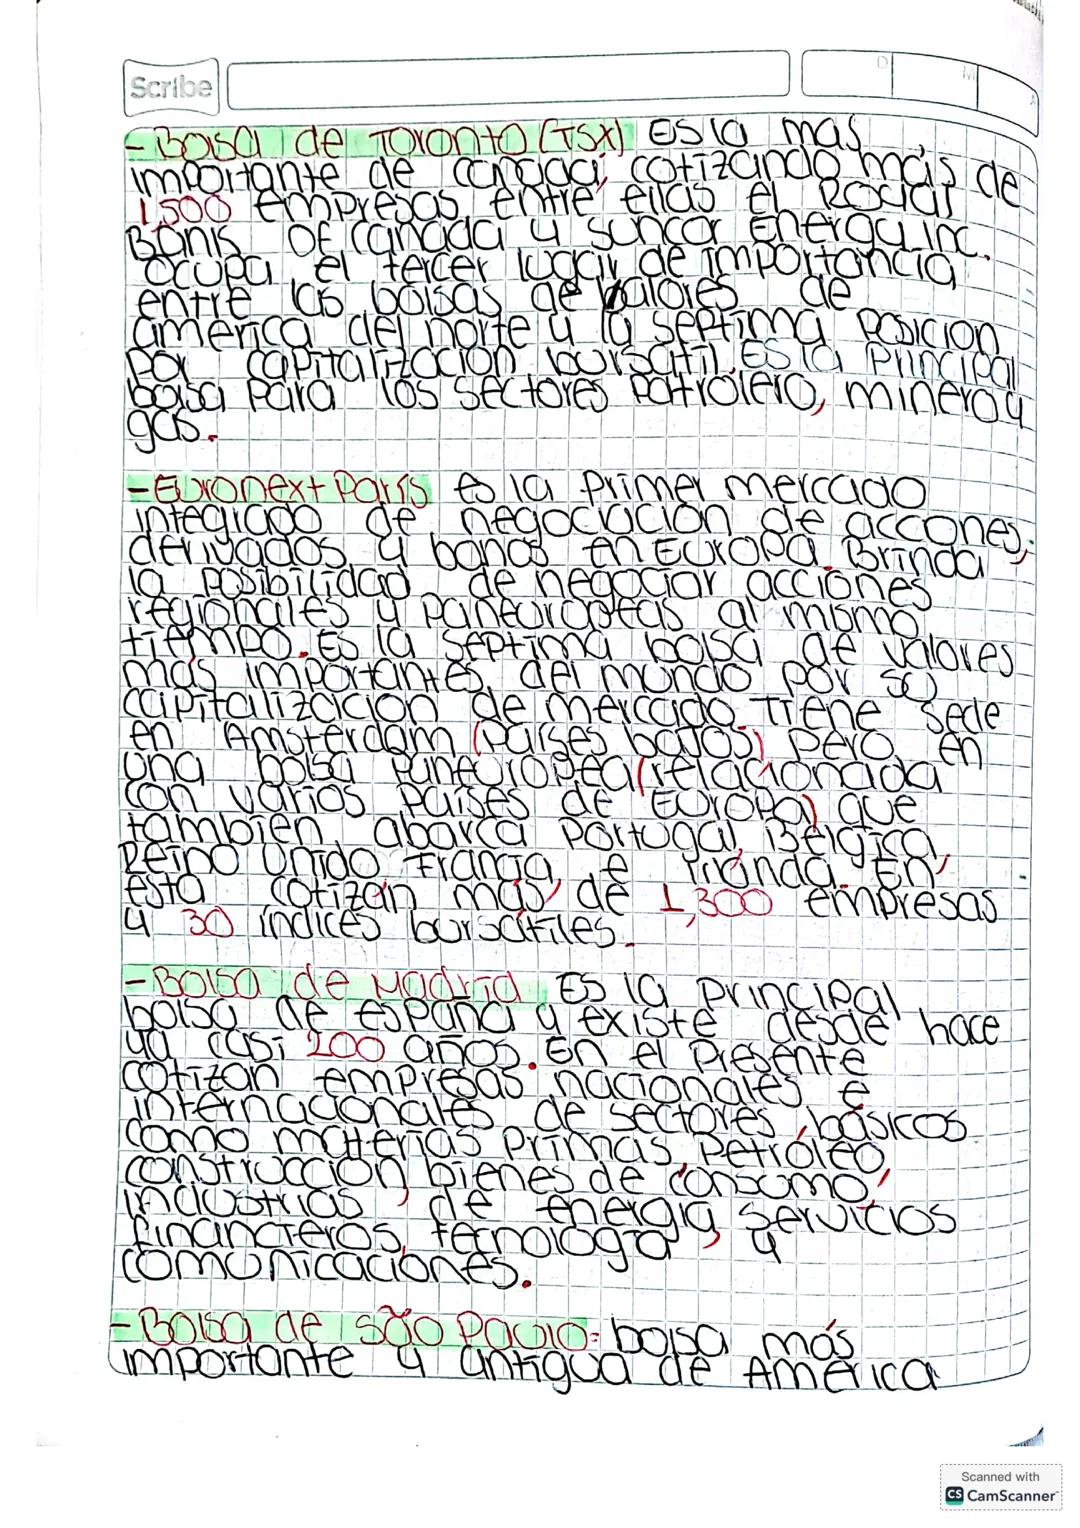 Scribe
D
M
A
- Bolsa de Toronto (TSX) Es la mas
importante de canada, cotizando más de
1,500 empresas entre ellas el Rocial
Bank OF Canada y suncor Energy inc.
Ocupa el tercer lugar de importancia
entre las bolsas de valores de
america del norte y la septima posicion
por capitalizacion bursatil. Es la principal
bolsa para los sectores patrólero, minero y
gas.
- Euronext París es la primer mercado
integrado de negociacion de accones,
derivados y bonos en Europa. Brinda
la posibilidad de negociar acciones
regionales y paneuropeas al mismo
tiempo. Es la septima bolsa de valores
más importantes del mundo por su
capitalizacion de mercado. Tiene sede
en Amsterdam (países bajos) pero en
una bolsa paneuropea (relacionada
con varios países de Europa) que
tambien abarca Portugal, Bélgica,
Reino Unido, Francia, e Irlanda. En
esta cotizan más de 1,300 empresas
y 30 índices bursátiles.
- Bolsa de Madrid Es la principal
bolsa de españa y existe desde hace
ya casi 200 años. En el presente
cotizan empresas nacionales e
internacionales de sectores básicos
como materias primas, petróleo,
construcción, bienes de consumo,
industrias, de energía, servicios
financieros, tecnologia, y
comunicaciones.
- Bolsa de São Paulo: bolsa más
importante y antigua de América
Scanned with
CS CamScanner